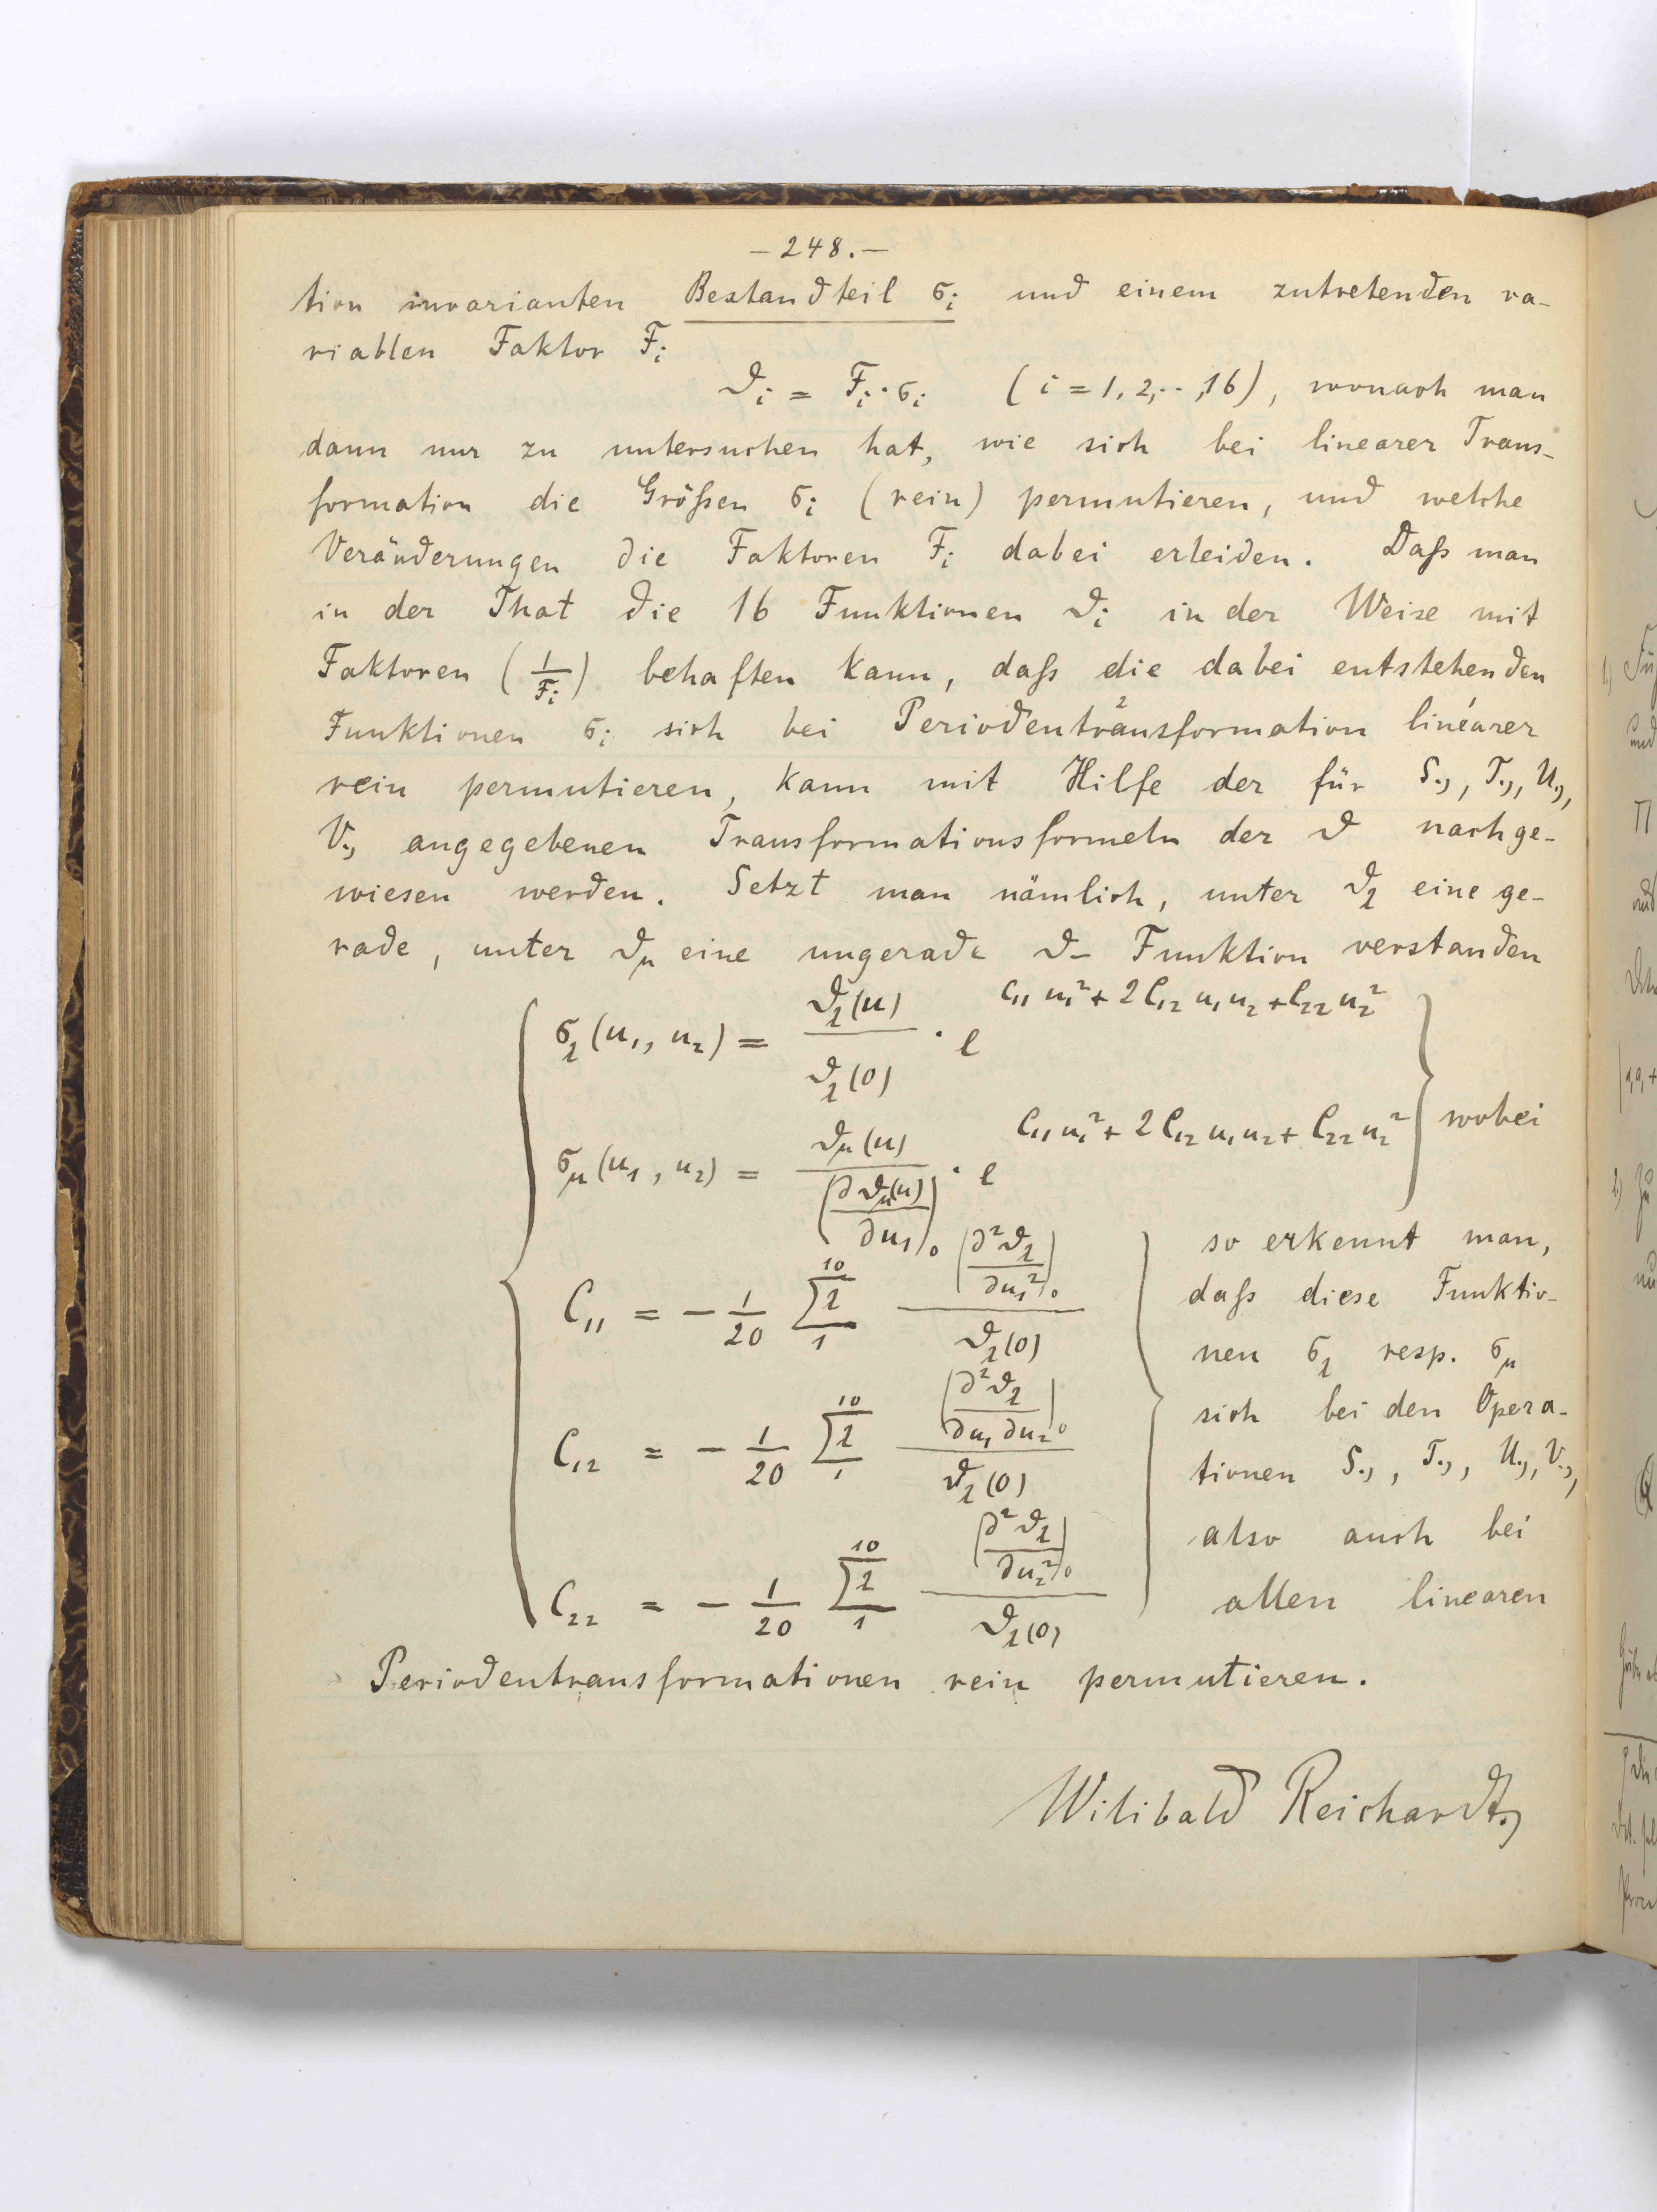 — 248. —
tion invarianten Bestandteil σᵢ und einem zutretenden va-
riablen Faktor Fᵢ
ϑᵢ = Fᵢ · σᵢ (i = 1, 2, ··, 16), wonach man
dann nur zu untersuchen hat, wie sich bei linearer Trans-
formation die Größen σᵢ (rein) permutieren, und welche
Veränderungen die Faktoren Fᵢ dabei erleiden. Daß man
in der That die 16 Funktionen ϑᵢ in der Weise mit
Faktoren (1/Fᵢ) behaften kann, daß die dabei entstehenden
Funktionen σᵢ sich bei Periodentransformation² linearer¹
rein permutieren, kann mit Hilfe der für S., T., U.,
V., angegebenen Transformationsformeln der ϑ nachge-
wiesen werden. Setzt man nämlich, unter ϑ_λ eine ge-
rade, unter ϑ_μ eine ungerade ϑ- Funktion verstanden
σ_λ(u₁, u₂) = ϑ_λ(u) / ϑ_λ(0) · e^{C₁₁u₁² + 2C₁₂u₁u₂ + C₂₂u₂²}
σ_μ(u₁, u₂) = ϑ_μ(u) / (∂ϑ_μ(u)/∂u₁)₀ · e^{C₁₁u₁² + 2C₁₂u₁u₂ + C₂₂u₂²} wobei
C₁₁ = − 1/20 Σ_λ₁¹⁰ (∂²ϑ_λ/∂u₁²)₀ / ϑ_λ(0)
C₁₂ = − 1/20 Σ_λ₁¹⁰ (∂²ϑ_λ/∂u₁∂u₂)₀ / ϑ_λ(0)
C₂₂ = − 1/20 Σ_λ₁¹⁰ (∂²ϑ_λ/∂u₂²)₀ / ϑ_λ(0)
so erkennt man,
daß diese Funktio-
nen σ_λ resp. σ_μ
sich bei den Opera-
tionen S., T., U., V.,
also auch bei
allen linearen
Periodentransformationen rein permutieren.
Wilibald Reichardt.